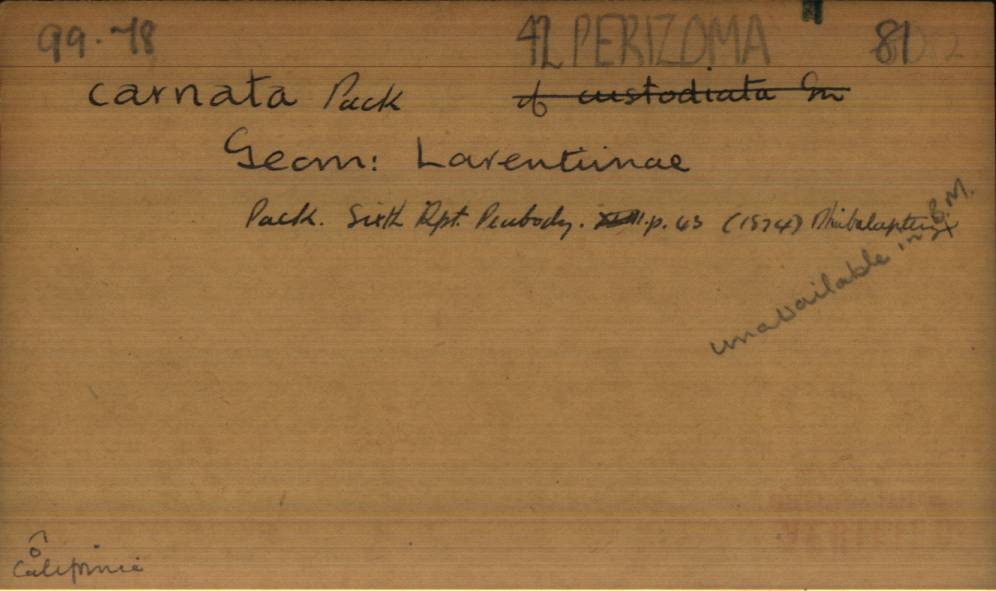 99.78 42 PERIZOMA 81
carnata Pack of custodiata Gn
Geom: Larentiinae
Pack. Sixth Rpt. Peabody. p. 43 (1874) Phibalapteryx
unavailable in B.M.
California